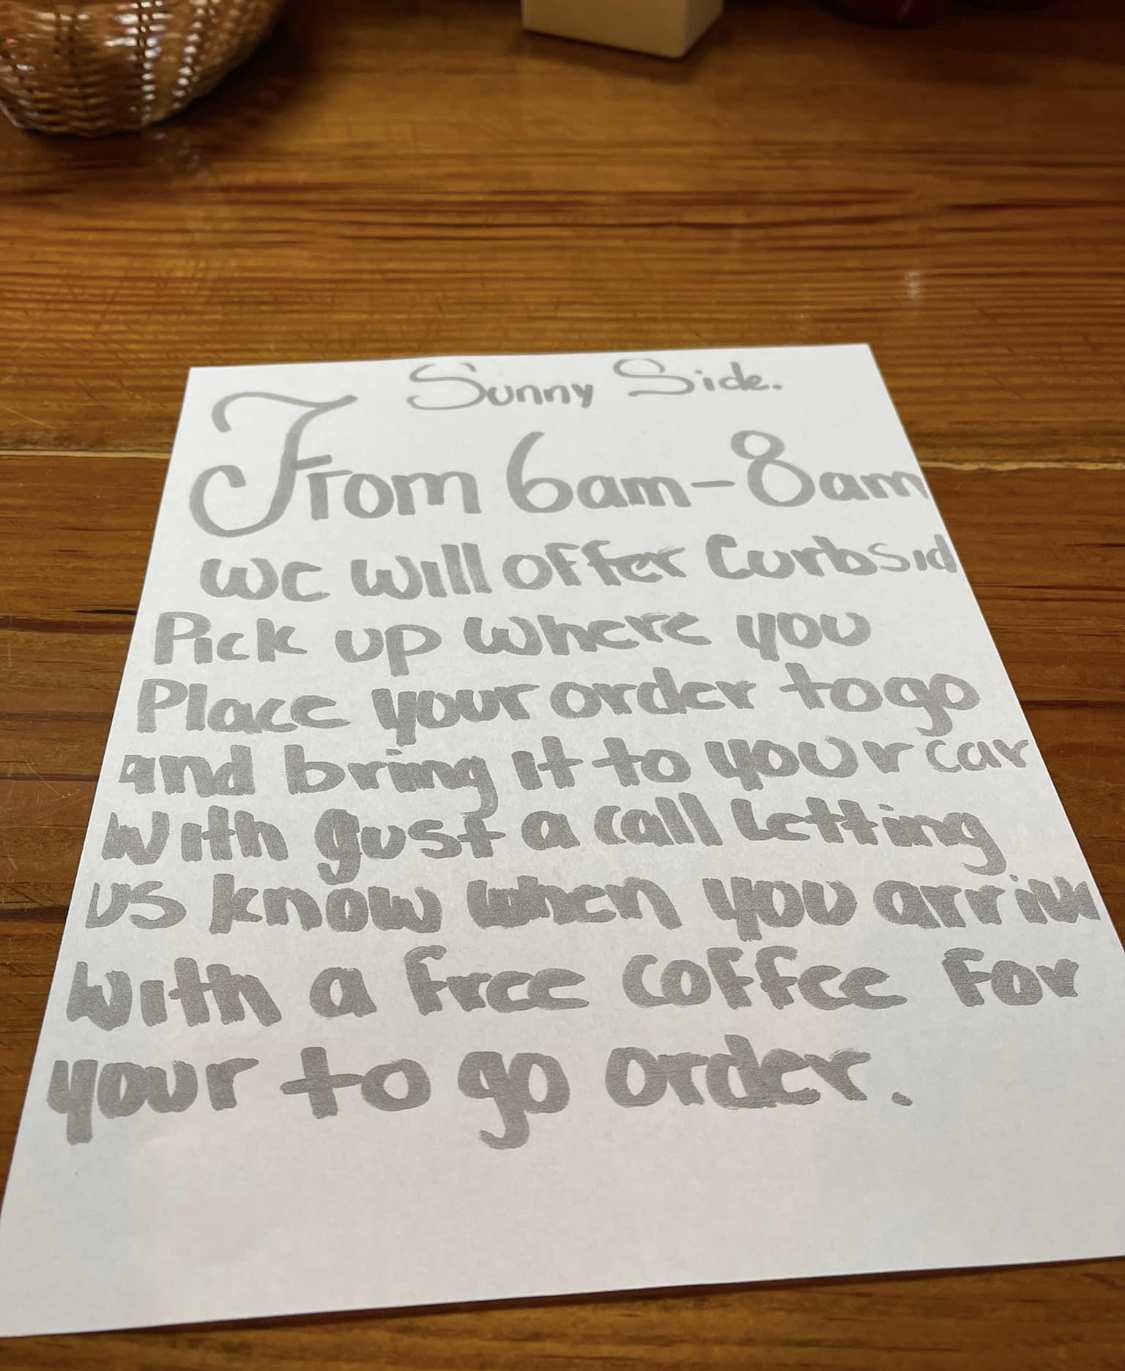 Sunny Side.
From 6am-8am
we will offer Curbsid
Pick up where you
Place your order togo
and bring it to your car
with gust a call Letting
us know when you arriv
with a free coffee for
your to go order.